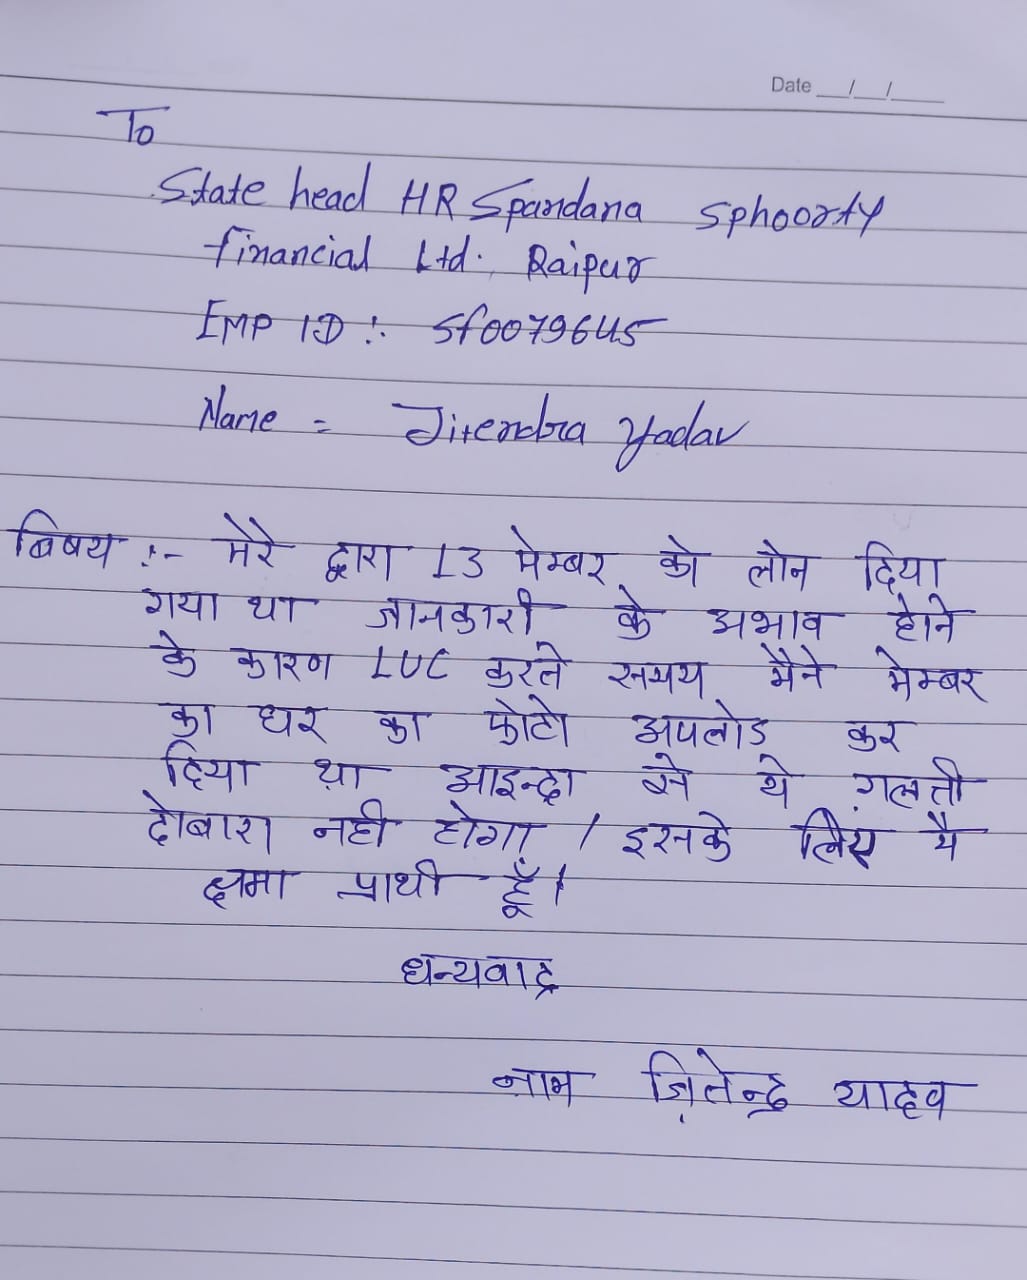 Date __/__/____
To
State head HR Spandana Sphoorty
financial Ltd. Raipur
EMP ID :- Sf0079645
Name = Jitendra Yadav
बिषय :- मेरे द्वारा 13 मेम्बर को लोन दिया
गया था जानकारी के अभाव होने
के कारण LUC करते समय मैने मेम्बर
का घर का फोटो अपलोड कर
दिया था आइन्द्रा से ये ग़लती
दोबारा नही होगा / इसके लिए मै
क्षमा प्राथी हूँ।
धन्यवाद्र
नाम ज़ितेन्द्र यादव